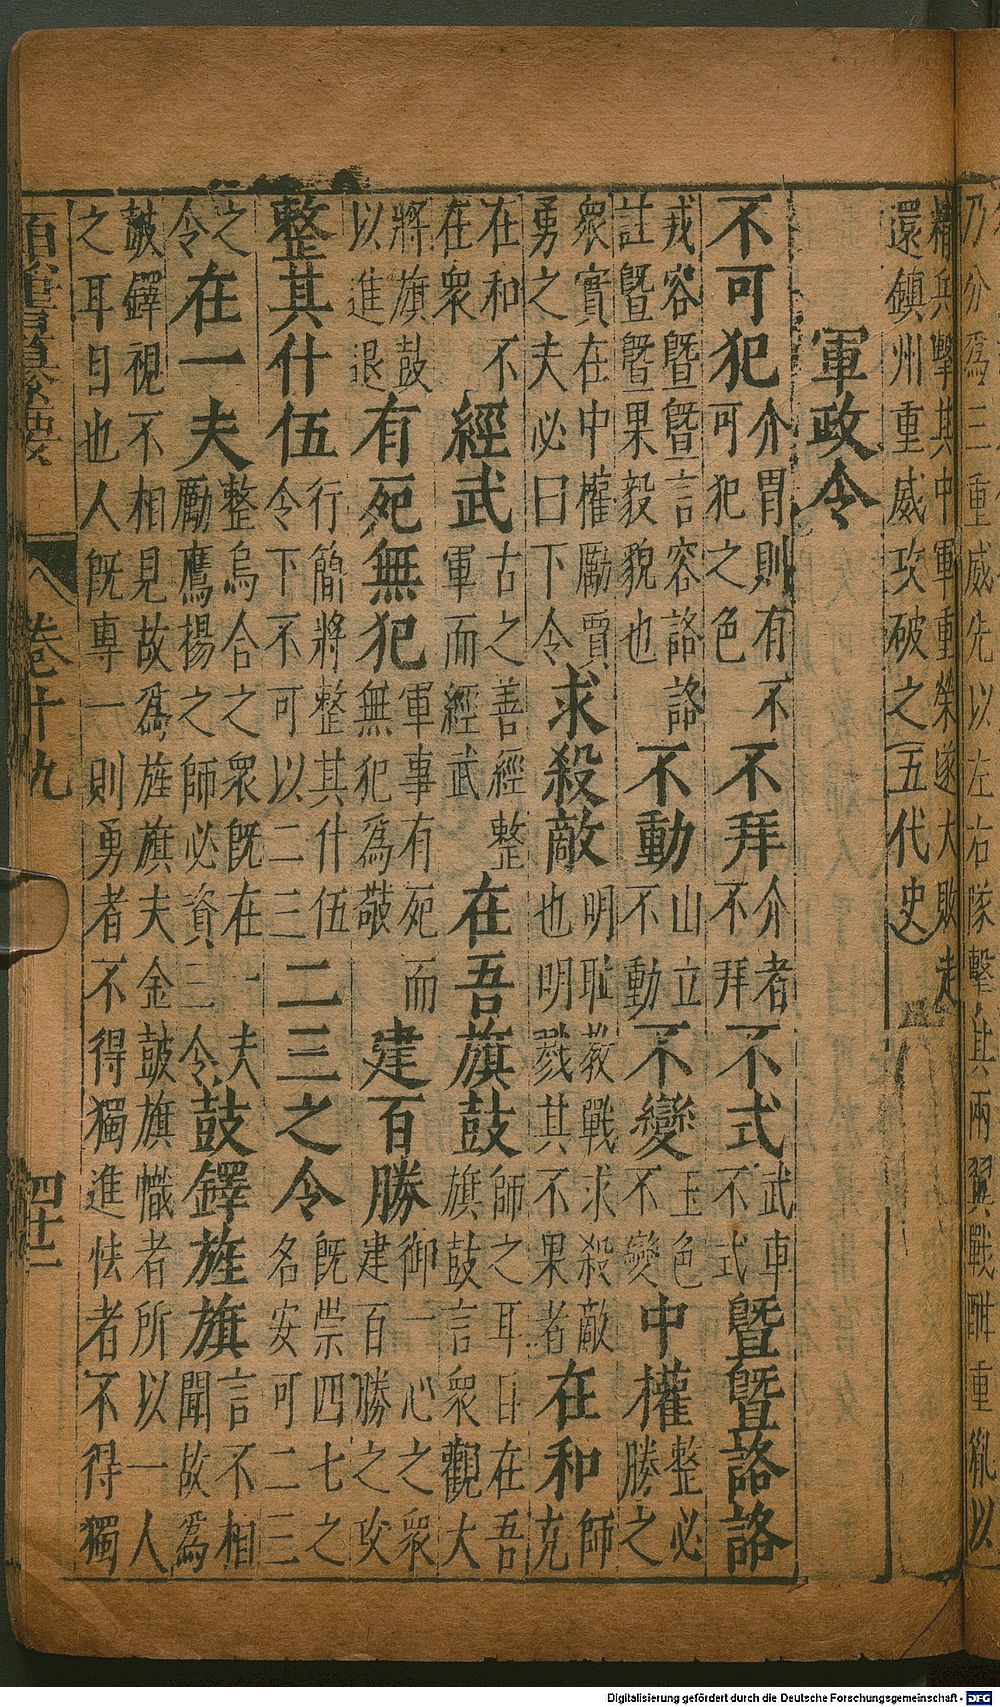 乃分爲三重威先以左右隊擊其兩翼戰酣重胤以
精兵擊其中軍重榮遂大敗走
還鎮州重威攻破之(五代史)
軍政令
不可犯介胃則有不可犯之色不拜介者不拜不式武車不式暨暨詻詻
戎容暨暨言容詻詻註暨暨果毅貌也不動山立不動不變玉色不變中權整必勝之
衆實在中權勵賈勇之夫必曰下令求殺敵明耻教戰求殺敵也明戮其不果者在和師克
在和不在衆經武古之善經整軍而經武在吾旗鼓師之耳目在吾旗鼓言衆觀大
將旗鼓以進退有死無犯軍事有死而無犯爲敬建百勝御一心之衆建百勝之攻
整其什伍行簡將整其什伍令下不可以二三二三之令既崇四七之名安可二三
之令在一夫整烏合之衆既在一夫勵鷹揚之師必資三令鼓鐸旌旗言不相聞故爲
皷鐸視不相見故爲旌旗夫金皷旗幟者所以一人
之耳目也人既專一則勇者不得獨進怯者不得獨
卷十九 四十二
Digitalisierung gefördert durch die Deutsche Forschungsgemeinschaft - DFG